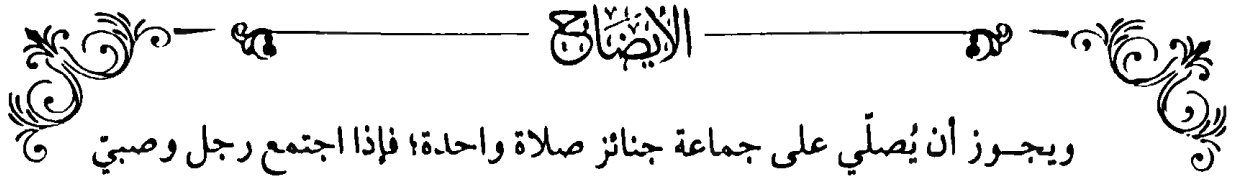 الإيضاح
ويجوز أن يُصلّي على جماعة جنائز صلاة واحدة؛ فإذا اجتمع رجل وصبيّ